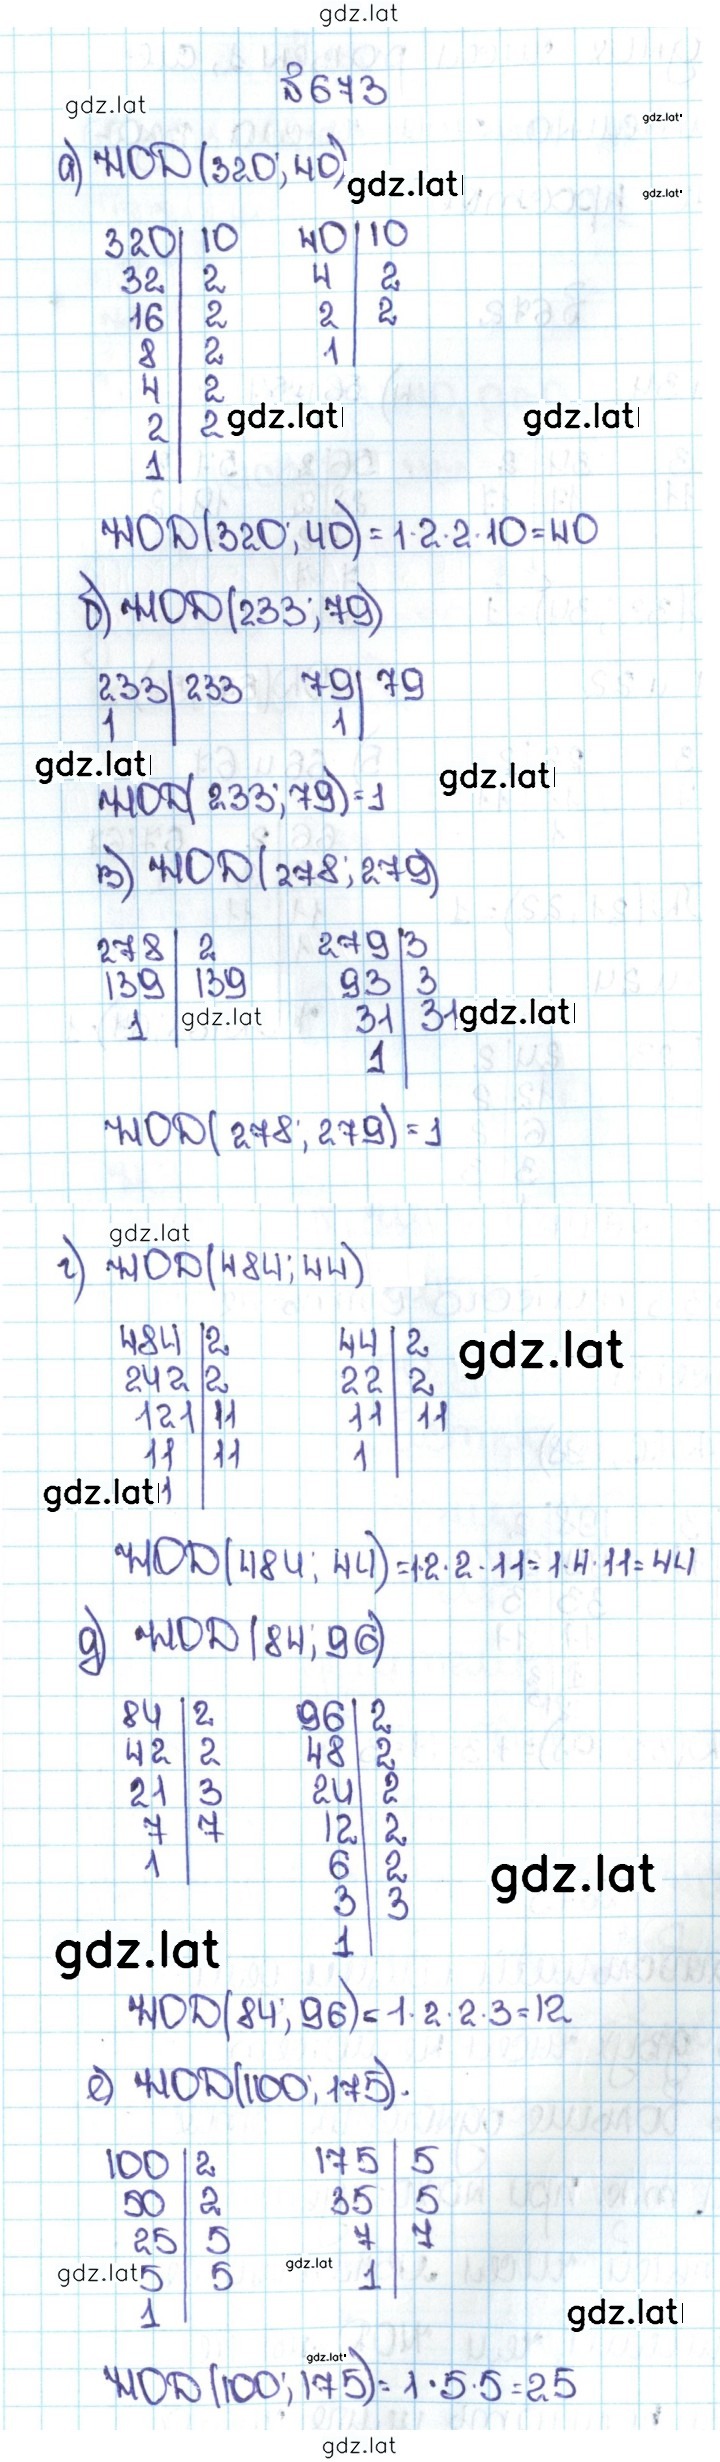 gdz.lat
№673
gdz.lat
gdz.lat
а) НОД(320; 40)
gdz.lat
gdz.lat
320 | 10 40 | 10
32 | 2 4 | 2
16 | 2 2 | 2
8 | 2 1 |
4 | 2
gdz.lat gdz.lat
2 | 2
1 |
НОД(320; 40) = 1·2·2·10=40
б) НОД(233; 79)
233 | 233 79 | 79
1 | 1 |
gdz.lat gdz.lat
НОД(233; 79)=1
в) НОД(278; 279)
278 | 2 279 | 3
139 | 139 93 | 3
1 | 31 | 31
gdz.lat gdz.lat
1 |
НОД(278; 279)=1
gdz.lat
г) НОД(484; 44)
484 | 2 44 | 2
gdz.lat
242 | 2 22 | 2
121 | 11 11 | 11
11 | 11 1 |
gdz.lat
1 |
НОД(484; 44)=1·2·2·11=1·4·11=44
д) НОД(84; 96)
84 | 2 96 | 2
42 | 2 48 | 2
21 | 3 24 | 2
7 | 7 12 | 2
1 | 6 | 2
gdz.lat
3 | 3
gdz.lat
1 |
НОД(84; 96)=1·2·2·3=12
е) НОД(100; 175).
100 | 2 175 | 5
50 | 2 35 | 5
25 | 5 7 | 7
5 | 5 1 |
gdz.lat gdz.lat
1 |
gdz.lat
gdz.lat
НОД(100; 175)=1·5·5=25
gdz.lat